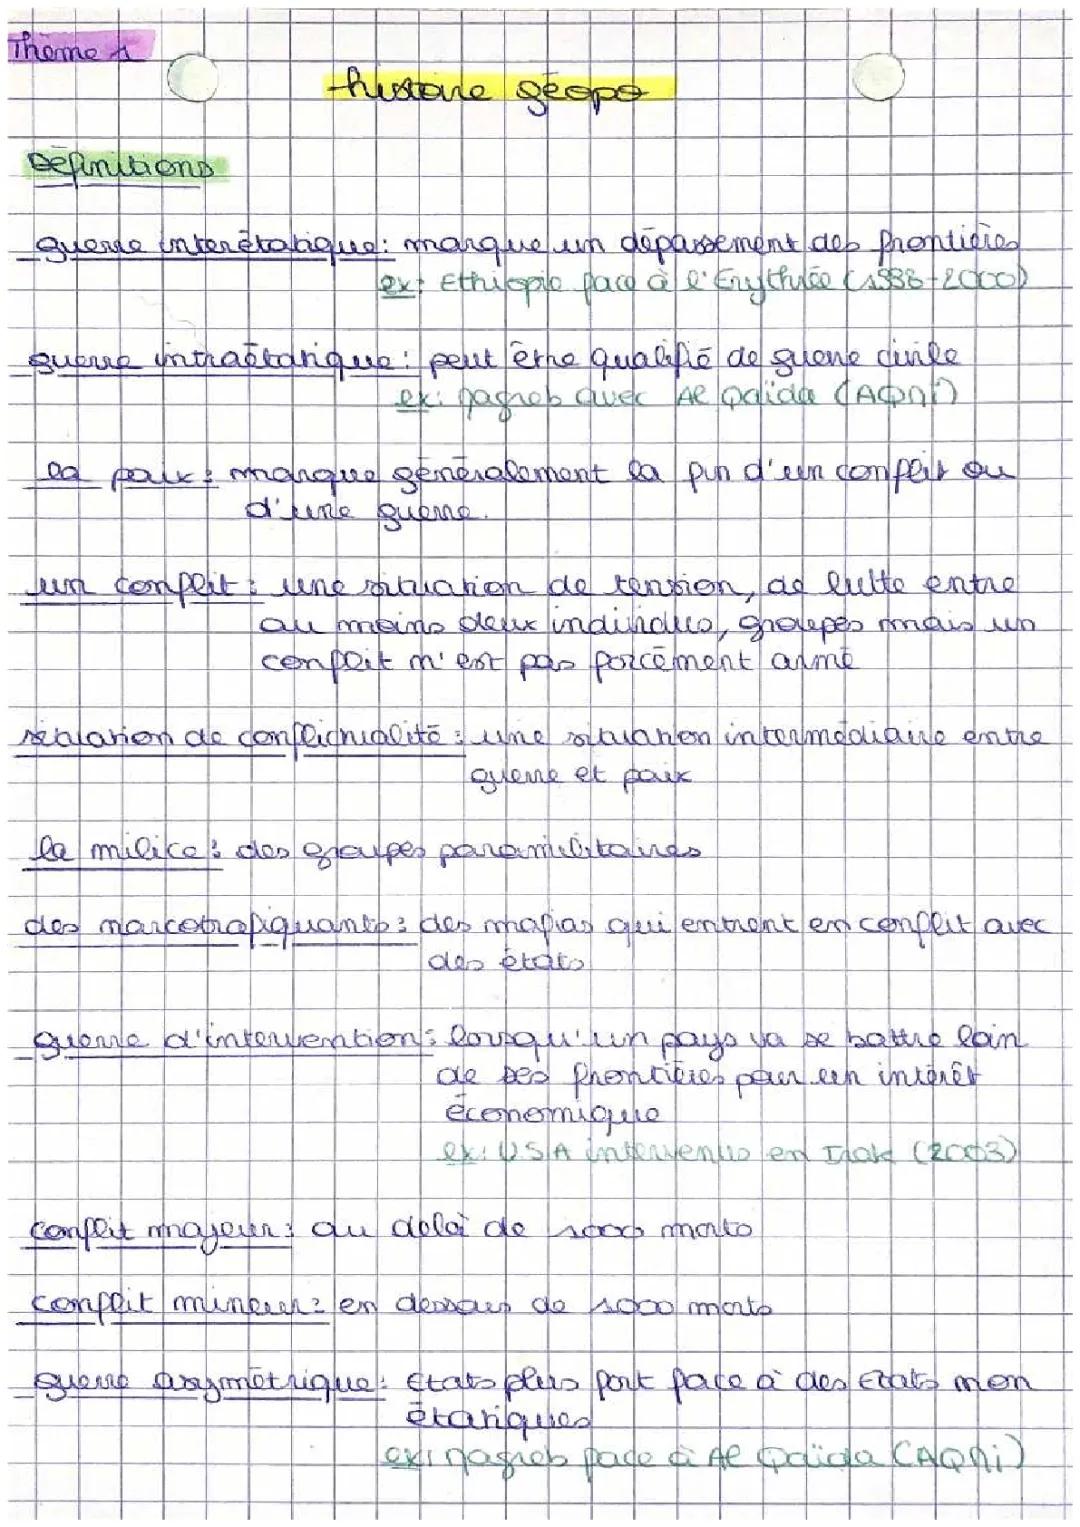 Thème 1
histoire géopo
Définitions
guerre interétatique : marque un dépassement des frontières
ex : Ethiopie face à l'Erythrée (1998-2000)
guerre intraétatique : peut être qualifié de guerre civile
ex : Magreb avec Al Qaïda (AQMi)
la paix : marque généralement la fin d'un conflit ou
d'une guerre.
un conflit : une situation de tension, de lutte entre
au moins deux individus, groupes mais un
conflit n'est pas forcément armé
situation de conflictualité : une situation intermédiaire entre
guerre et paix
la milice : des groupes paramilitaires
des narcotrafiquants : des mafias qui entrent en conflit avec
des états
guerre d'intervention : lorsqu'un pays va se battre loin
de ses frontières pour un intérêt
économique
ex : U.S.A intervenus en Irak (2003)
conflit majeur : au delà de 1000 morts
conflit mineur : en dessous de 1000 morts
guerre asymétrique : Etats plus fort face à des Etats non
étatiques
ex : Magreb face à Al Qaïda (AQMi)